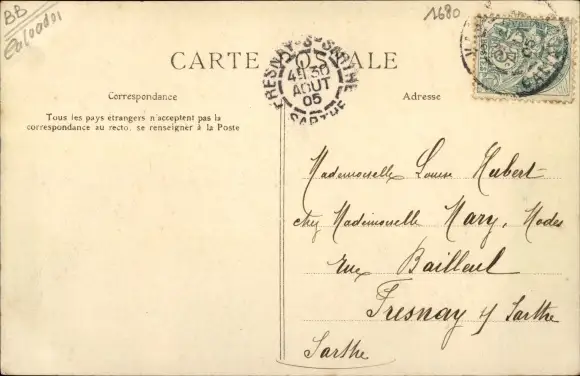 BB
Calvados
1680
CARTE POSTALE
FRESNAY-S-SARTHE
4E 30
AOUT
05
SARTHE
Correspondance
Adresse
Tous les pays étrangers n'acceptent pas la
correspondance au recto, se renseigner à la Poste
Mademoiselle Louise Hubert
chez Mademoiselle Mary, Modes
rue Bailleul
Fresnay s/ Sarthe
Sarthe